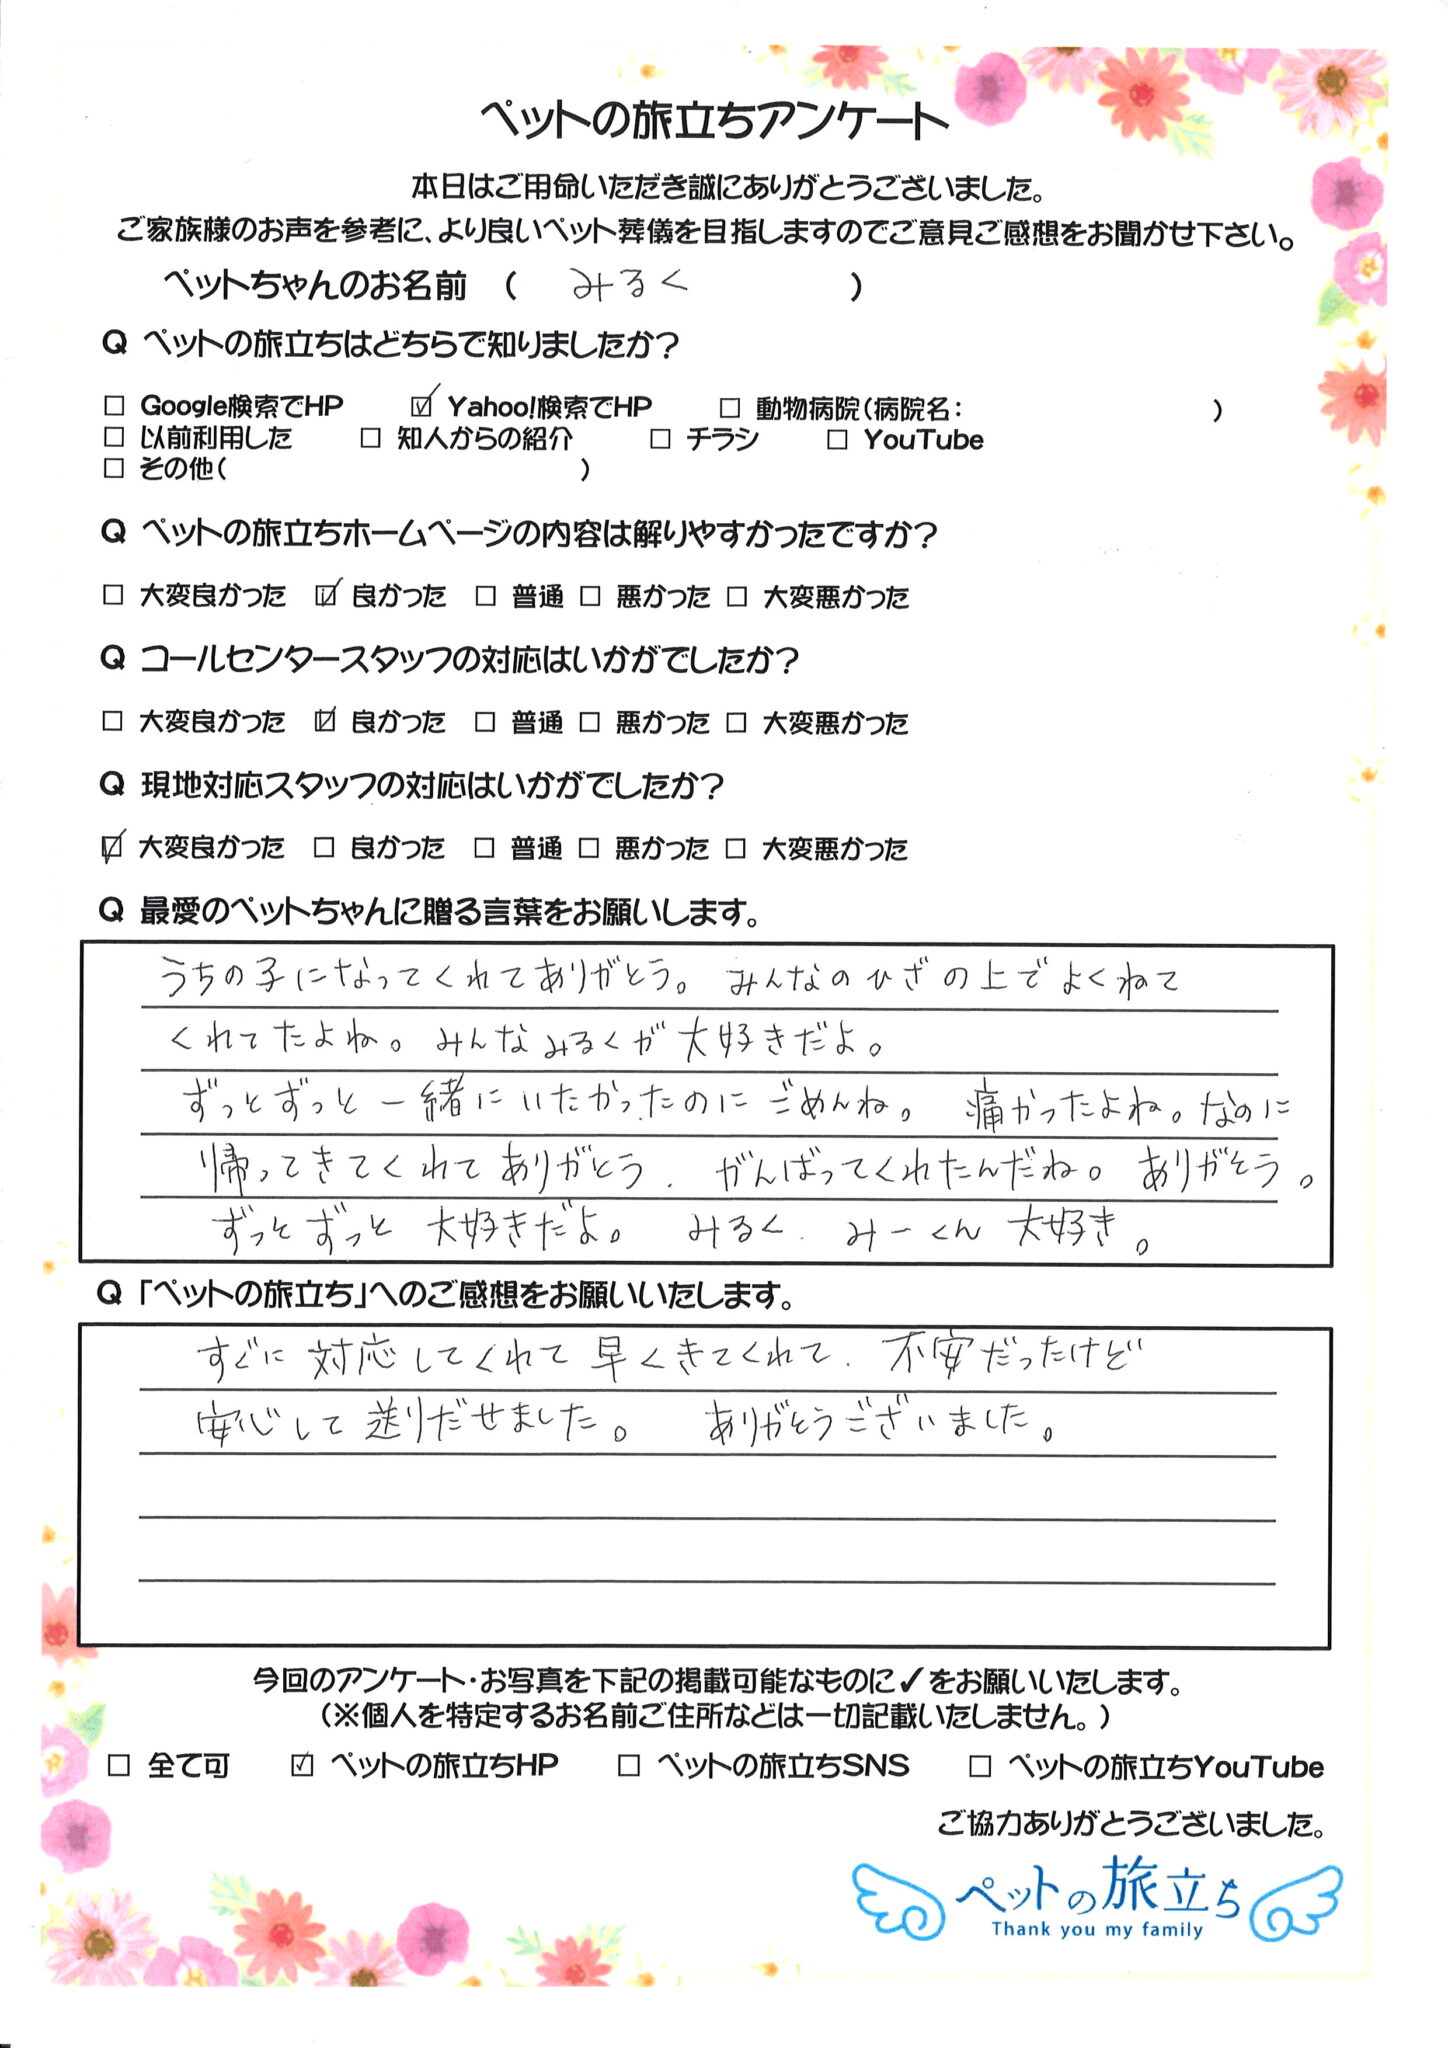 ペットの旅立ちアンケート
本日はご用命いただき誠にありがとうございました。
ご家族様のお声を参考に、より良いペット葬儀を目指しますのでご意見ご感想をお聞かせ下さい。
ペットちゃんのお名前 ( みるく )
Q ペットの旅立ちはどちらで知りましたか?
□ Google検索でHP ☑ Yahoo!検索でHP □ 動物病院(病院名: )
□ 以前利用した □ 知人からの紹介 □ チラシ □ YouTube
□ その他( )
Q ペットの旅立ちホームページの内容は解りやすかったですか?
□ 大変良かった ☑ 良かった □ 普通 □ 悪かった □ 大変悪かった
Q コールセンタースタッフの対応はいかがでしたか?
□ 大変良かった ☑ 良かった □ 普通 □ 悪かった □ 大変悪かった
Q 現地対応スタッフの対応はいかがでしたか?
☑ 大変良かった □ 良かった □ 普通 □ 悪かった □ 大変悪かった
Q 最愛のペットちゃんに贈る言葉をお願いします。
うちの子になってくれてありがとう。 みんなのひざの上でよくねて
くれてたよね。みんなみるくが大好きだよ。
ずっとずっと一緒にいたかったのにごめんね。 痛かったよね。なのに
帰ってきてくれてありがとう. がんばってくれたんだね。ありがとう。
ずっとずっと 大好きだよ。 みるく. みーくん 大好き。
Q 「ペットの旅立ち」へのご感想をお願いいたします。
すぐに対応してくれて早くきてくれて. 不安だったけど
安心して送りだせました。 ありがとうございました。
今回のアンケート・お写真を下記の掲載可能なものに✓をお願いいたします。
(※個人を特定するお名前ご住所などは一切記載いたしません。)
□ 全て可 ☑ ペットの旅立ちHP □ ペットの旅立ちSNS □ ペットの旅立ちYouTube
ご協力ありがとうございました。
ペットの旅立ち
Thank you my family